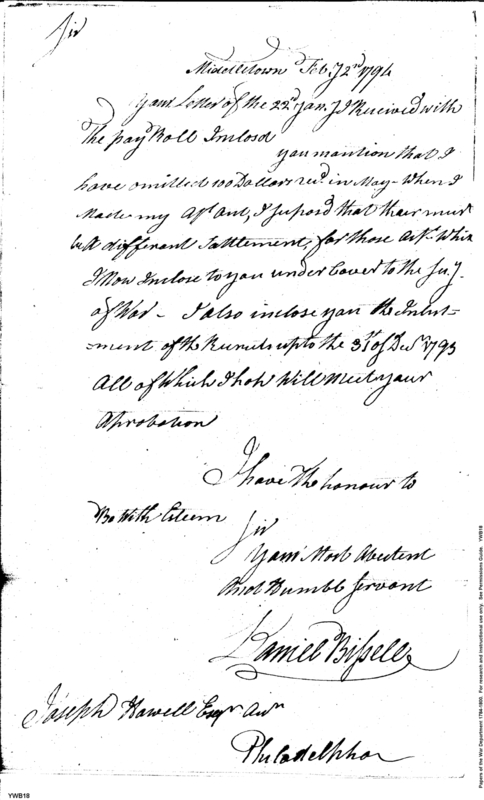 Sir
Middletown Feb.y 2nd 1794
Your Letter of the 22d Jany I Received with
The pay Roll Inclosd
you mantion that I
have omitted 100 Dollars recd. in May - When I
Made my Act. I suposd that thair must
be A different Sattlement, for those which
I Now Inclose to you under Cover to the Secy.
of War - I also inclose you the Inlist-
-ment of the Recruits up to the 31st of Decr. 1793
All of Which I hope Will Meet your
Aprobation
I have The honour to
Be With Esteem
Sir
Your Most Abedent
And Humble Servant
Daniel Bissell
Joseph Howell Esqr.
Philadelphia
YWB18
Papers of the War Department 1784-1800. For research and instructional use only. See Permissions Guide. YWB18